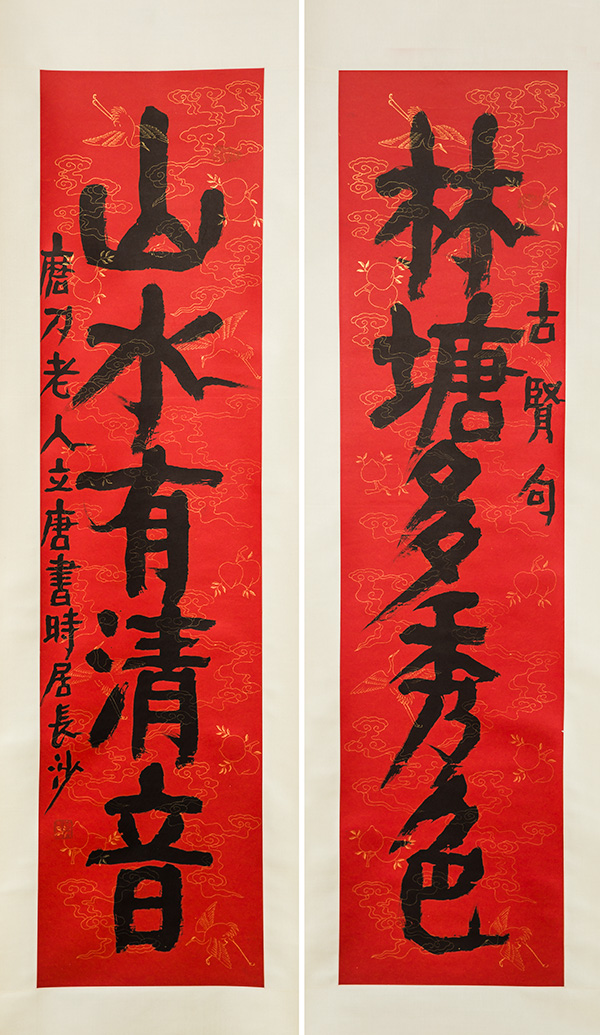 古賢句
林塘多秀色
山水有清音
刀老人立唐書時居長沙